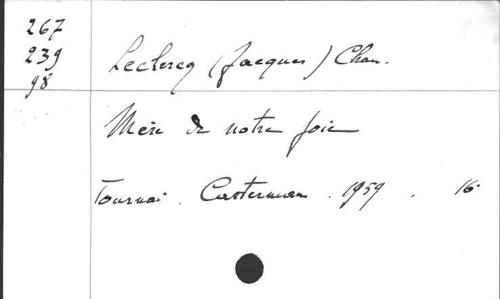 267
239
98
Leclercq (Jacques) Chan.
Mère de notre joie
Tournai. Casterman. 1959. 16°